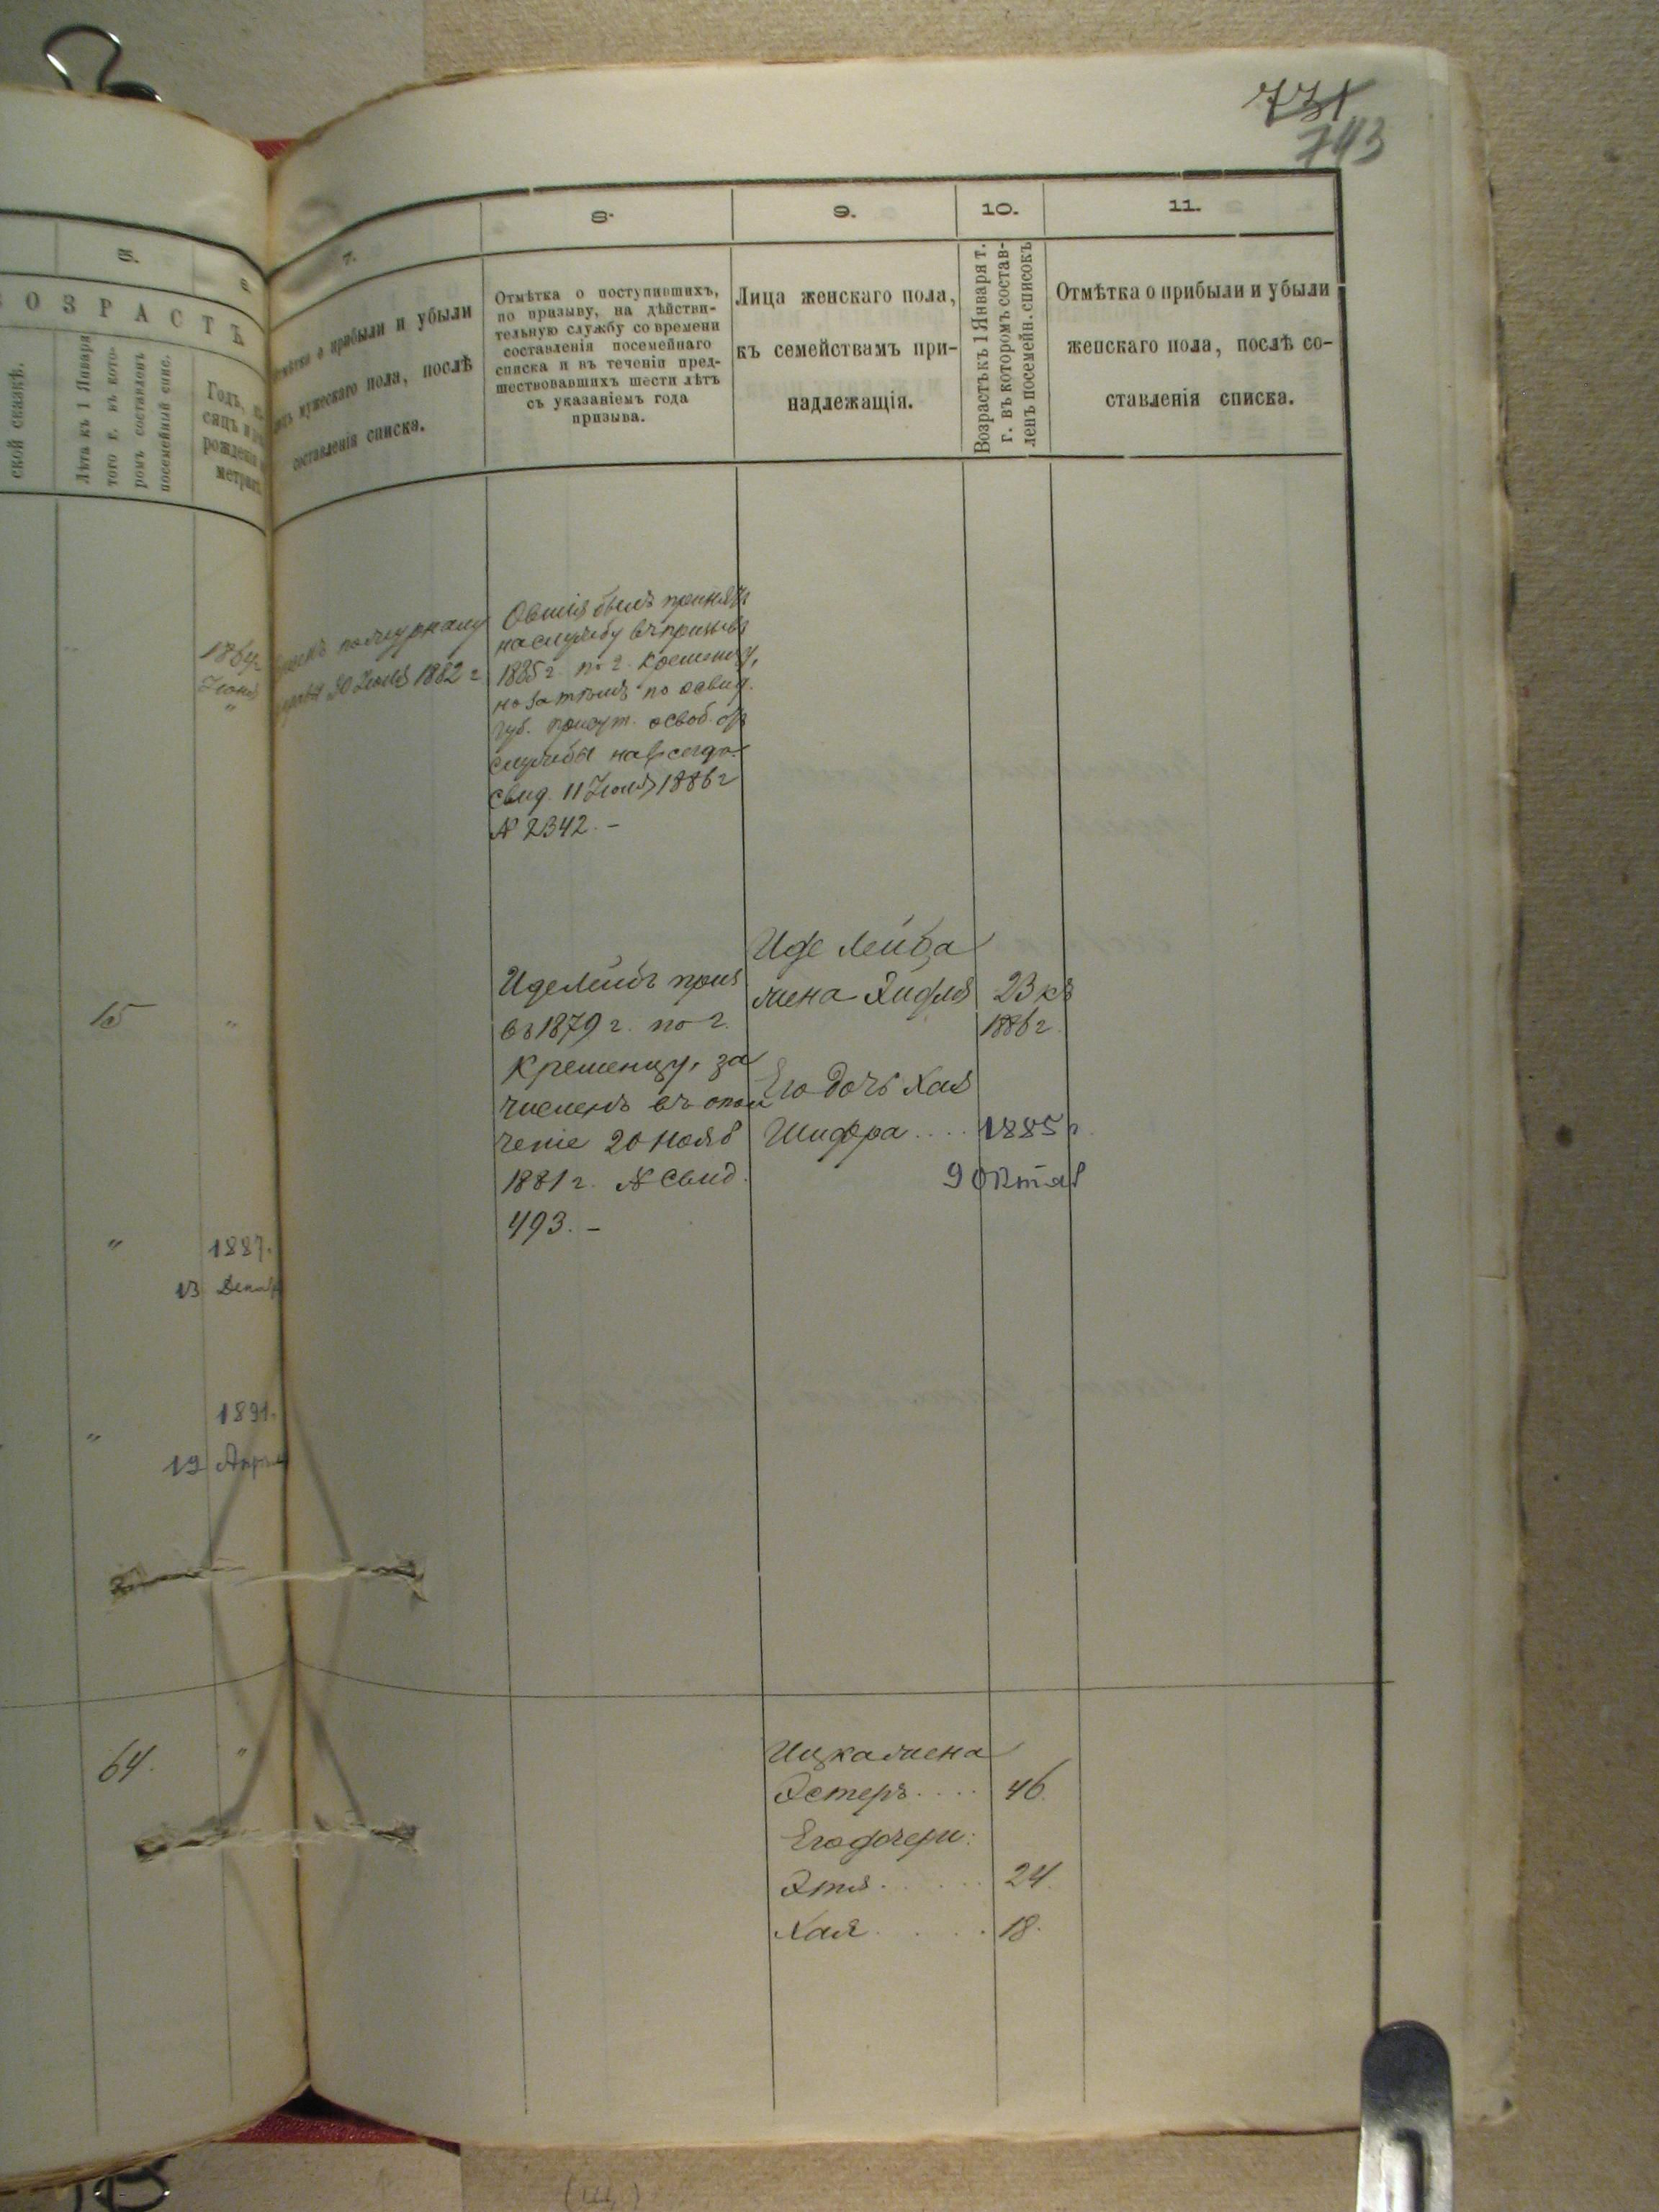 731
743
5.
7.
8.
9.
10.
11.
ВОЗРАСТЪ
ской сказкѣ.
Лѣта къ 1 Января
того г. въ кото-
ромъ составленъ
посемейный спис.
Годъ, мѣ-
сяцъ и
рожденія
метрик.
о прибыли и убыли
мужескаго пола, послѣ
составленія списка.
Отмѣтка о поступившихъ,
по призыву, на дѣйстви-
тельную службу со времени
составленія посемейнаго
списка и въ теченіи пред-
шествовавшихъ шести лѣтъ
съ указаніемъ года
призыва.
Лица женскаго пола,
къ семействамъ при-
надлежащія.
Возрастъ къ 1 Января т.
г. въ которомъ состав-
ленъ посемейн. списокъ
Отмѣтка о прибыли и убыли
женскаго пола, послѣ со-
ставленія списка.
1864
Іюня
"
по журналу
30 Іюля 1882 г
Овшія былъ принятъ
на службу въ призывъ
1885 г. по г. Кременцу,
но затѣмъ по освид.
Губ. присут. освоб. отъ
службы навсегда
свид. 11 Іюля 1886 г
№ 2342. –
15
"
Иделейбъ прин
въ 1879 г. по г.
Кременцу, за
численъ въ опол
ченіе 20 Нояб
1881 г. № Свид.
493. –
Иде Лейба
жена Эйдля 23 къ
1886 г.
Его дочь Хая
Шифра .... 1885 г.
9 Октяб
"
1887.
13 Декаб
"
1891.
19 Апрѣл
64.
"
Ицка жена
Эстеръ .... 46.
Его дочери:
Этя ..... 24.
Хая ..... 18.